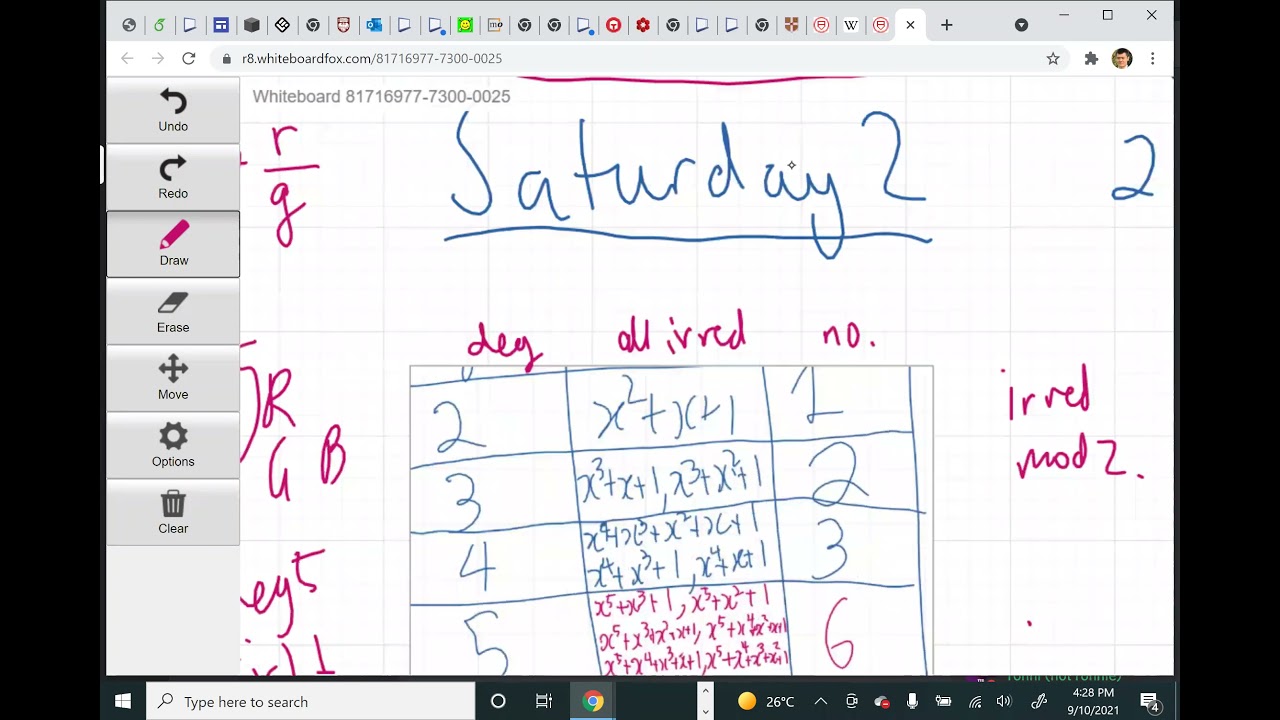 r8.whiteboardfox.com/81716977-7300-0025
Undo
Redo
Draw
Erase
Move
Options
Clear
Whiteboard 81716977-7300-0025
r
g
Saturday 2
2
R
G B
5
deg all irred no.
2 x²+x+1 1
3 x³+x+1, x³+x²+1 2
4 x⁴+x³+x²+x+1
x⁴+x³+1, x⁴+x+1 3
5 x⁵+x³+1, x⁵+x²+1
x⁵+x³+x²+x+1, x⁵+x⁴+x²+x+1
x⁵+x⁴+x³+x+1, x⁵+x⁴+x³+x²+1 6
irred
mod 2.
Type here to search
26°C
4:28 PM
9/10/2021
4